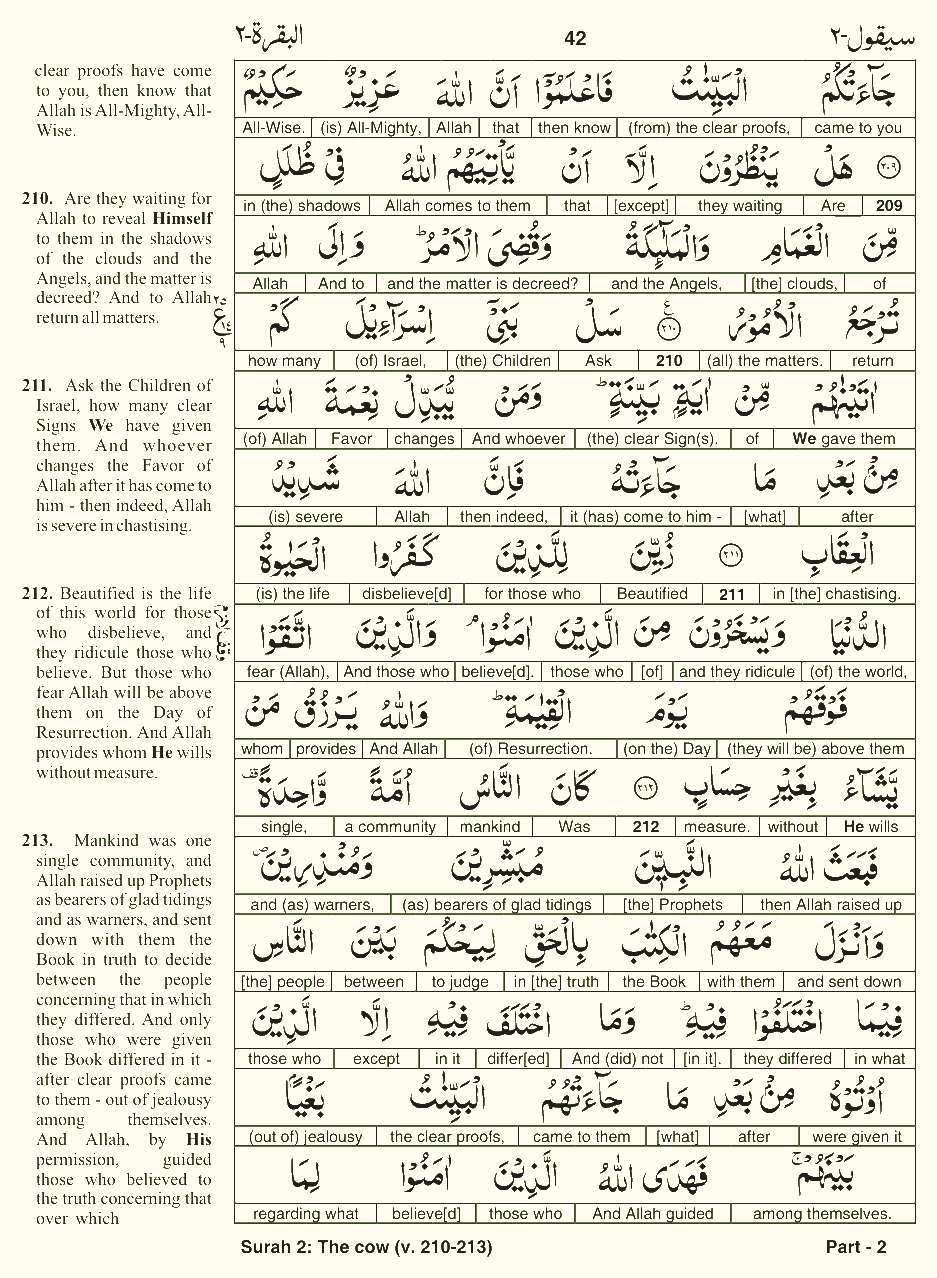 البقرة-٢ 42 سيقول-٢
clear proofs have come
to you, then know that
Allah is All-Mighty, All-
Wise.
210. Are they waiting for
Allah to reveal Himself
to them in the shadows
of the clouds and the
Angels, and the matter is
decreed? And to Allah
return all matters.
211. Ask the Children of
Israel, how many clear
Signs We have given
them. And whoever
changes the Favor of
Allah after it has come to
him - then indeed, Allah
is severe in chastising.
212. Beautified is the life
of this world for those
who disbelieve, and
they ridicule those who
believe. But those who
fear Allah will be above
them on the Day of
Resurrection. And Allah
provides whom He wills
without measure.
213. Mankind was one
single community, and
Allah raised up Prophets
as bearers of glad tidings
and as warners, and sent
down with them the
Book in truth to decide
between the people
concerning that in which
they differed. And only
those who were given
the Book differed in it -
after clear proofs came
to them - out of jealousy
among themselves.
And Allah, by His
permission, guided
those who believed to
the truth concerning that
over which
جَآءَتْكُمُ الْبَيِّنٰتُ فَاعْلَمُوْۤا اَنَّ اللّٰهَ عَزِيْزٌ حَكِيْمٌ
All-Wise. (is) All-Mighty, Allah that then know (from) the clear proofs, came to you
﴿٢٠٩﴾ هَلْ يَنْظُرُوْنَ اِلَّاۤ اَنْ يَّاْتِيَهُمُ اللّٰهُ فِيْ ظُلَلٍ
in (the) shadows Allah comes to them that [except] they waiting Are 209
مِّنَ الْغَمَامِ وَالْمَلٰٓئِكَةُ وَقُضِيَ الْاَمْرُ ؕ وَاِلَى اللّٰهِ
Allah And to and the matter is decreed? and the Angels, [the] clouds, of
تُرْجَعُ الْاُمُوْرُ ﴿٢١٠﴾ سَلْ بَنِيْۤ اِسْرَآءِيْلَ كَمْ
how many (of) Israel, (the) Children Ask 210 (all) the matters. return
اٰتَيْنٰهُمْ مِّنْ اٰيَةٍۢ بَيِّنَةٍ ؕ وَمَنْ يُّبَدِّلْ نِعْمَةَ اللّٰهِ
(of) Allah Favor changes And whoever (the) clear Sign(s). of We gave them
مِنْۢ بَعْدِ مَا جَآءَتْهُ فَاِنَّ اللّٰهَ شَدِيْدُ
(is) severe Allah then indeed, it (has) come to him - [what] after
الْعِقَابِ ﴿٢١١﴾ زُيِّنَ لِلَّذِيْنَ كَفَرُوا الْحَيٰوةُ
(is) the life disbelieve[d] for those who Beautified 211 in [the] chastising.
الدُّنْيَا وَيَسْخَرُوْنَ مِنَ الَّذِيْنَ اٰمَنُوْا ۘ وَالَّذِيْنَ اتَّقَوْا
fear (Allah), And those who believe[d]. those who [of] and they ridicule (of) the world,
فَوْقَهُمْ يَوْمَ الْقِيٰمَةِ ؕ وَاللّٰهُ يَرْزُقُ مَنْ
whom provides And Allah (of) Resurrection. (on the) Day (they will be) above them
يَّشَآءُ بِغَيْرِ حِسَابٍ ﴿٢١٢﴾ كَانَ النَّاسُ اُمَّةً وَّاحِدَةً
single, a community mankind Was 212 measure. without He wills
فَبَعَثَ اللّٰهُ النَّبِيّٖنَ مُبَشِّرِيْنَ وَمُنْذِرِيْنَ
and (as) warners, (as) bearers of glad tidings [the] Prophets then Allah raised up
وَاَنْزَلَ مَعَهُمُ الْكِتٰبَ بِالْحَقِّ لِيَحْكُمَ بَيْنَ النَّاسِ
[the] people between to judge in [the] truth the Book with them and sent down
فِيْمَا اخْتَلَفُوْا فِيْهِ ؕ وَمَا اخْتَلَفَ فِيْهِ اِلَّا الَّذِيْنَ
those who except in it differ[ed] And (did) not [in it]. they differed in what
اُوْتُوْهُ مِنْۢ بَعْدِ مَا جَآءَتْهُمُ الْبَيِّنٰتُ بَغْيًاۢ
(out of) jealousy the clear proofs, came to them [what] after were given it
بَيْنَهُمْ ۚ فَهَدَى اللّٰهُ الَّذِيْنَ اٰمَنُوْا لِمَا
regarding what believe[d] those who And Allah guided among themselves.
Surah 2: The cow (v. 210-213) Part - 2